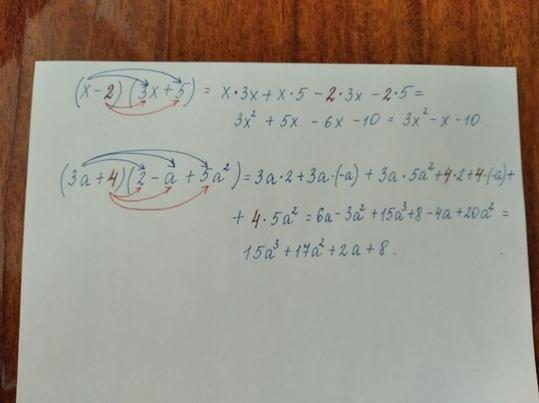 (x-2)(3x+5) = x•3x+x•5-2•3x-2•5=
3x² + 5x - 6x - 10 = 3x²-x-10.
(3a+4)(2-a+5a²)=3a•2+3a•(-a)+3a•5a²+4•2+4•(-a)+
+4•5a²=6a-3a²+15a³+8-4a+20a²=
15a³+17a²+2a+8.